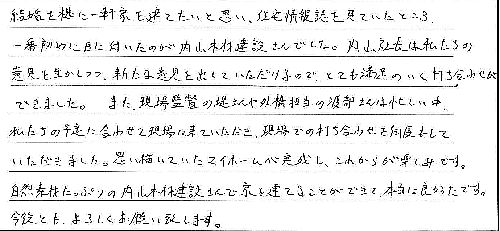 結婚を機に一軒家を建てたいと思い、住宅情報誌を見ていたところ、
一番初めに目に付いたのが内山木材建設さんでした。内山社長は私たちの
意見を生かしつつ、新たな意見を出していただけるので、とても満足のいく打ち合わせが
できました。 また、現場監督の堤さんや外構担当の渡部さんは忙しい中、
私たちの予定に合わせて現場に来ていただき、現場での打ち合わせを何度もして
いただきました。思い描いていたマイホームが完成し、これからが楽しみです。
自然素材たっぷりの内山木材建設さんで家を建てることができて、本当に良かったです。
今後とも、よろしくお願い致します。